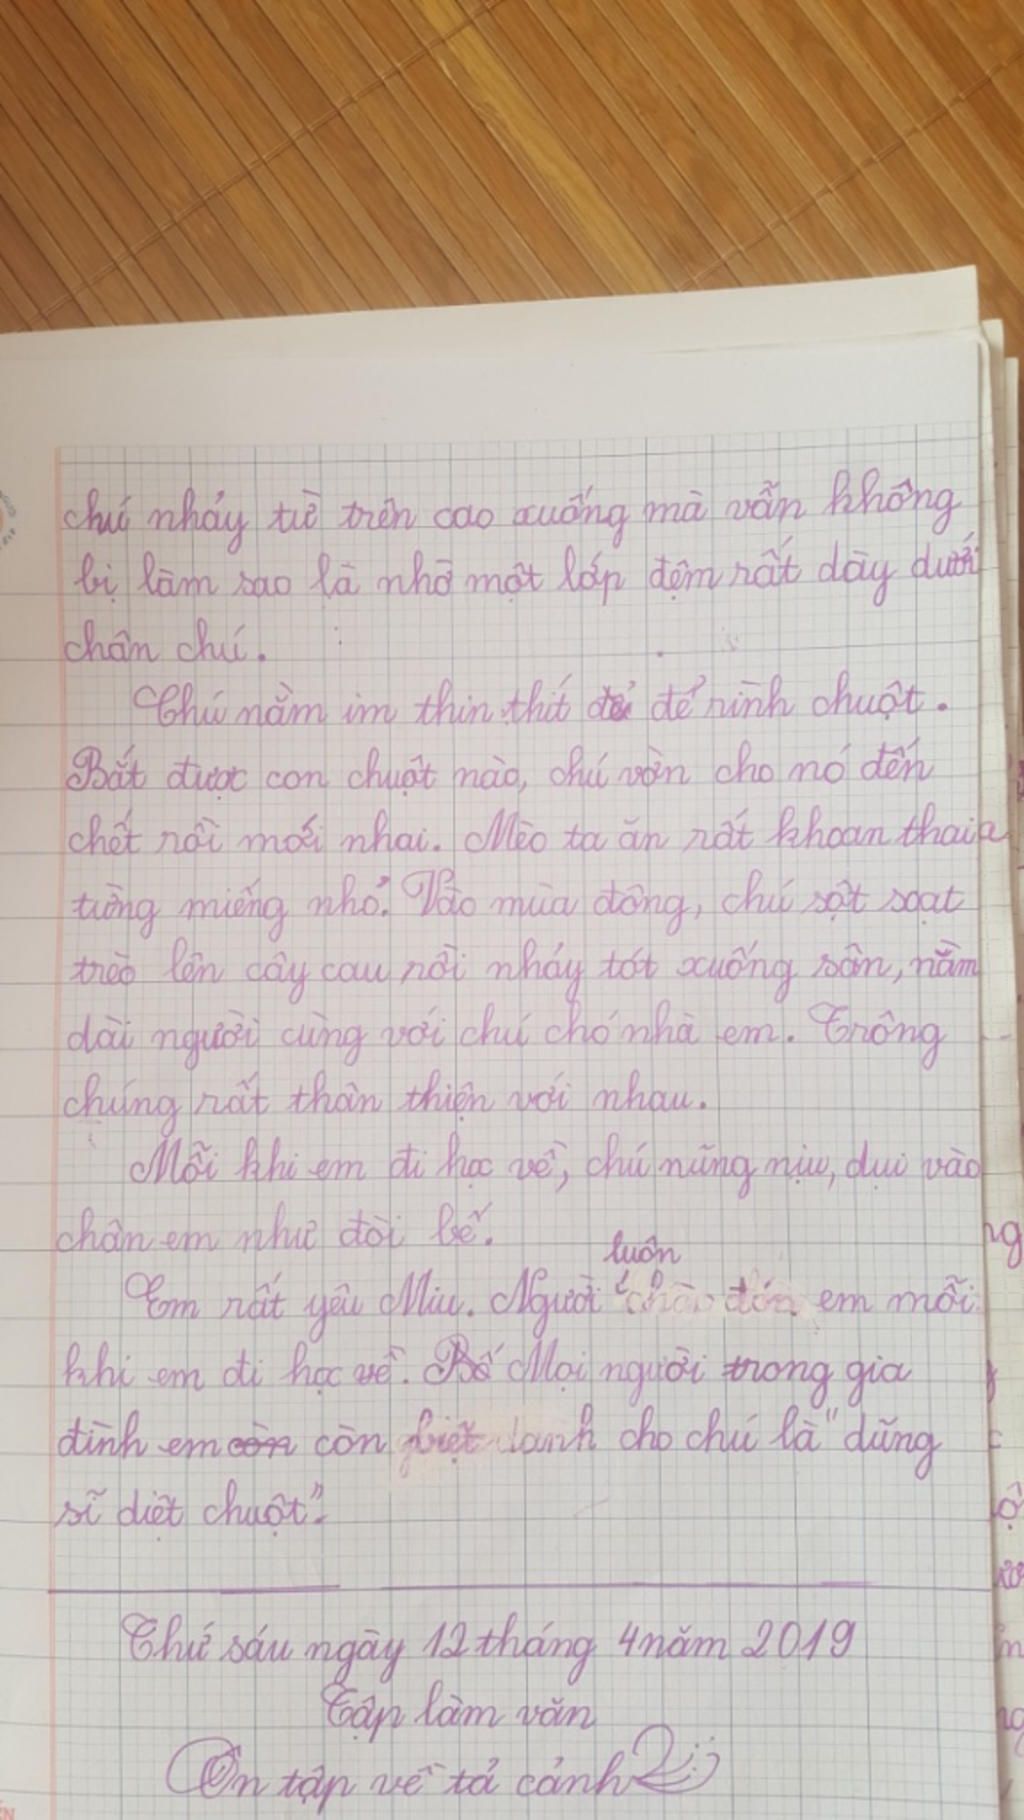 chú nhảy từ trên cao xuống mà vẫn không
bị làm sao là nhờ một lớp đệm rất dày dưới
chân chú.
Chú nằm im thin thít để rình chuột.
Bắt được con chuột nào, chú vờn cho nó đến
chết rồi mới nhai. Mèo ta ăn rất khoan thai
từng miếng nhỏ. Vào mùa đông, chú sột soạt
trèo lên cây cau rồi nhảy tót xuống sân, nằm
dài người cùng với chú chó nhà em. Trông
chúng rất thân thiện với nhau.
Mỗi khi em đi học về, chú nũng nịu, dụi vào
chân em như đòi bế.
luôn
Em rất yêu Miu. Người chào đón em mỗi
khi em đi học về. Bố Mọi người trong gia
đình em còn còn biệt danh cho chú là "dũng
sĩ diệt chuột".
Thứ sáu ngày 12 tháng 4 năm 2019
Tập làm văn
Ôn tập về tả cảnh